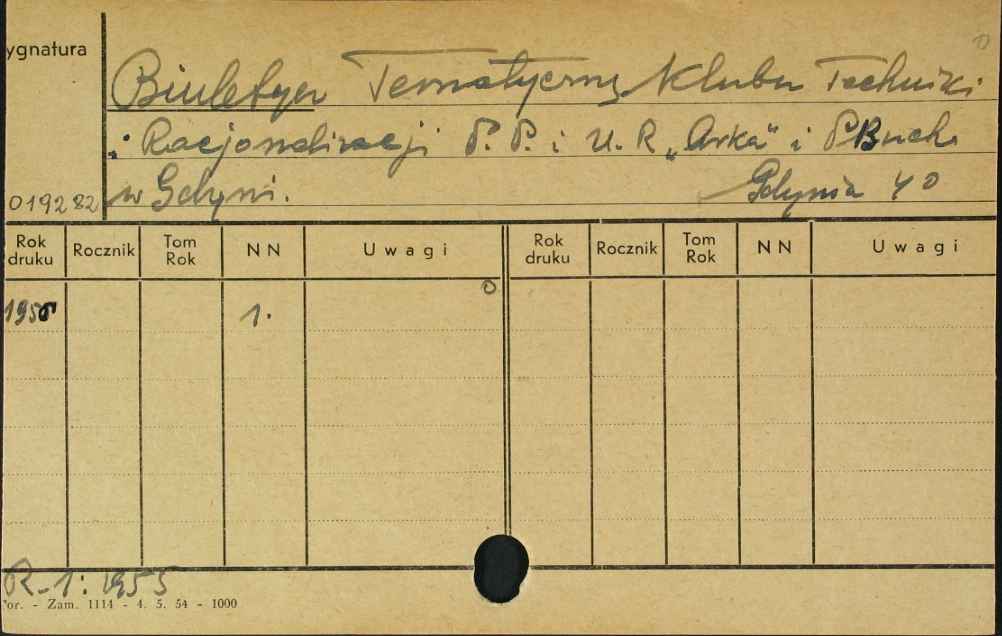 ygnatura
Biuletyn Tematyczny Klubu Techniki
i Racjonalizacji P. P. i U. R „Arka” i
w Gdyni. Gdynia 40
019282
Rok druku Rocznik Tom Rok NN Uwagi Rok druku Rocznik Tom Rok NN Uwagi
1955 1.
R-1: 1955
or. - Zam. 1114 - 4. 5. 54 - 1000